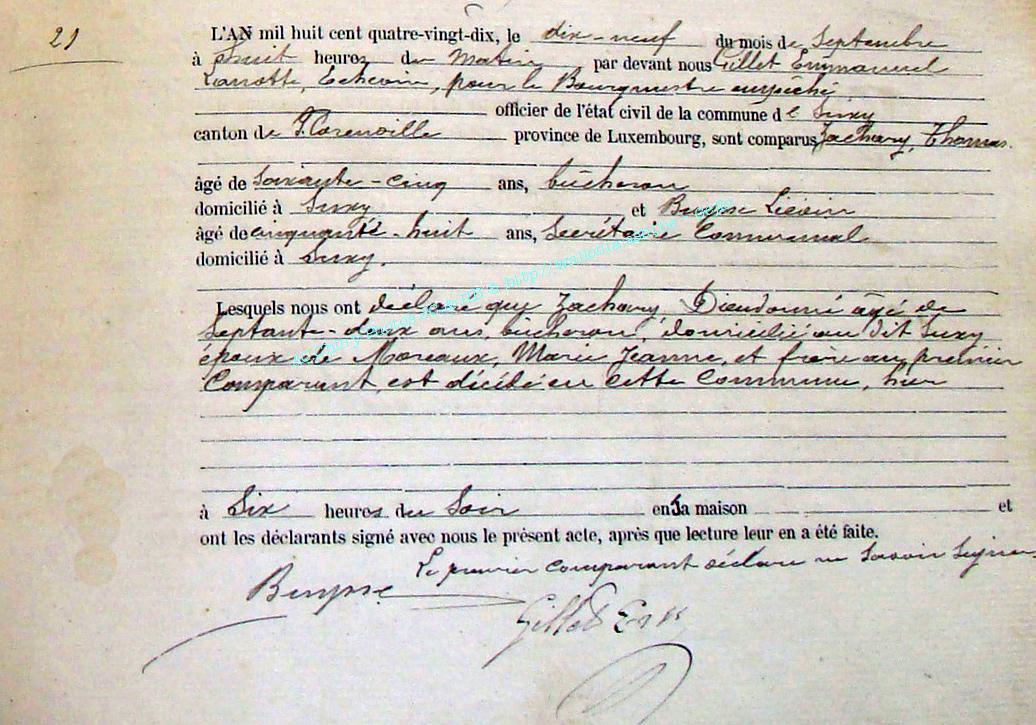 21
L'AN mil huit cent quatre-vingt-dix, le dix-neuf du mois de Septembre
à huit heures du Matin par devant nous Gillet Emmanuel
Echevin, pour le Bourgmestre empêché
officier de l'état civil de la commune de Suxy
canton de province de Luxembourg, sont comparus Zachary, Thomas
âgé de Soixante-cinq ans, bûcheron
domicilié à Suxy et Buysse Liévin
âgé de cinquante-huit ans, Secrétaire Communal
domicilié à Suxy.
Lesquels nous ont déclaré que Zachary Dieudonné âgé de
Septante-deux ans, bûcheron, domicilié au dit Suxy
époux de Moreaux, Marie Jeanne, et frère au premier
Comparant, est décédé en cette Commune, hier
à Six heures du Soir en Sa maison et
ont les déclarants signé avec nous le présent acte, après que lecture leur en a été faite.
Le premier comparant déclare ne Savoir Signer
Buysse
Gillet Em